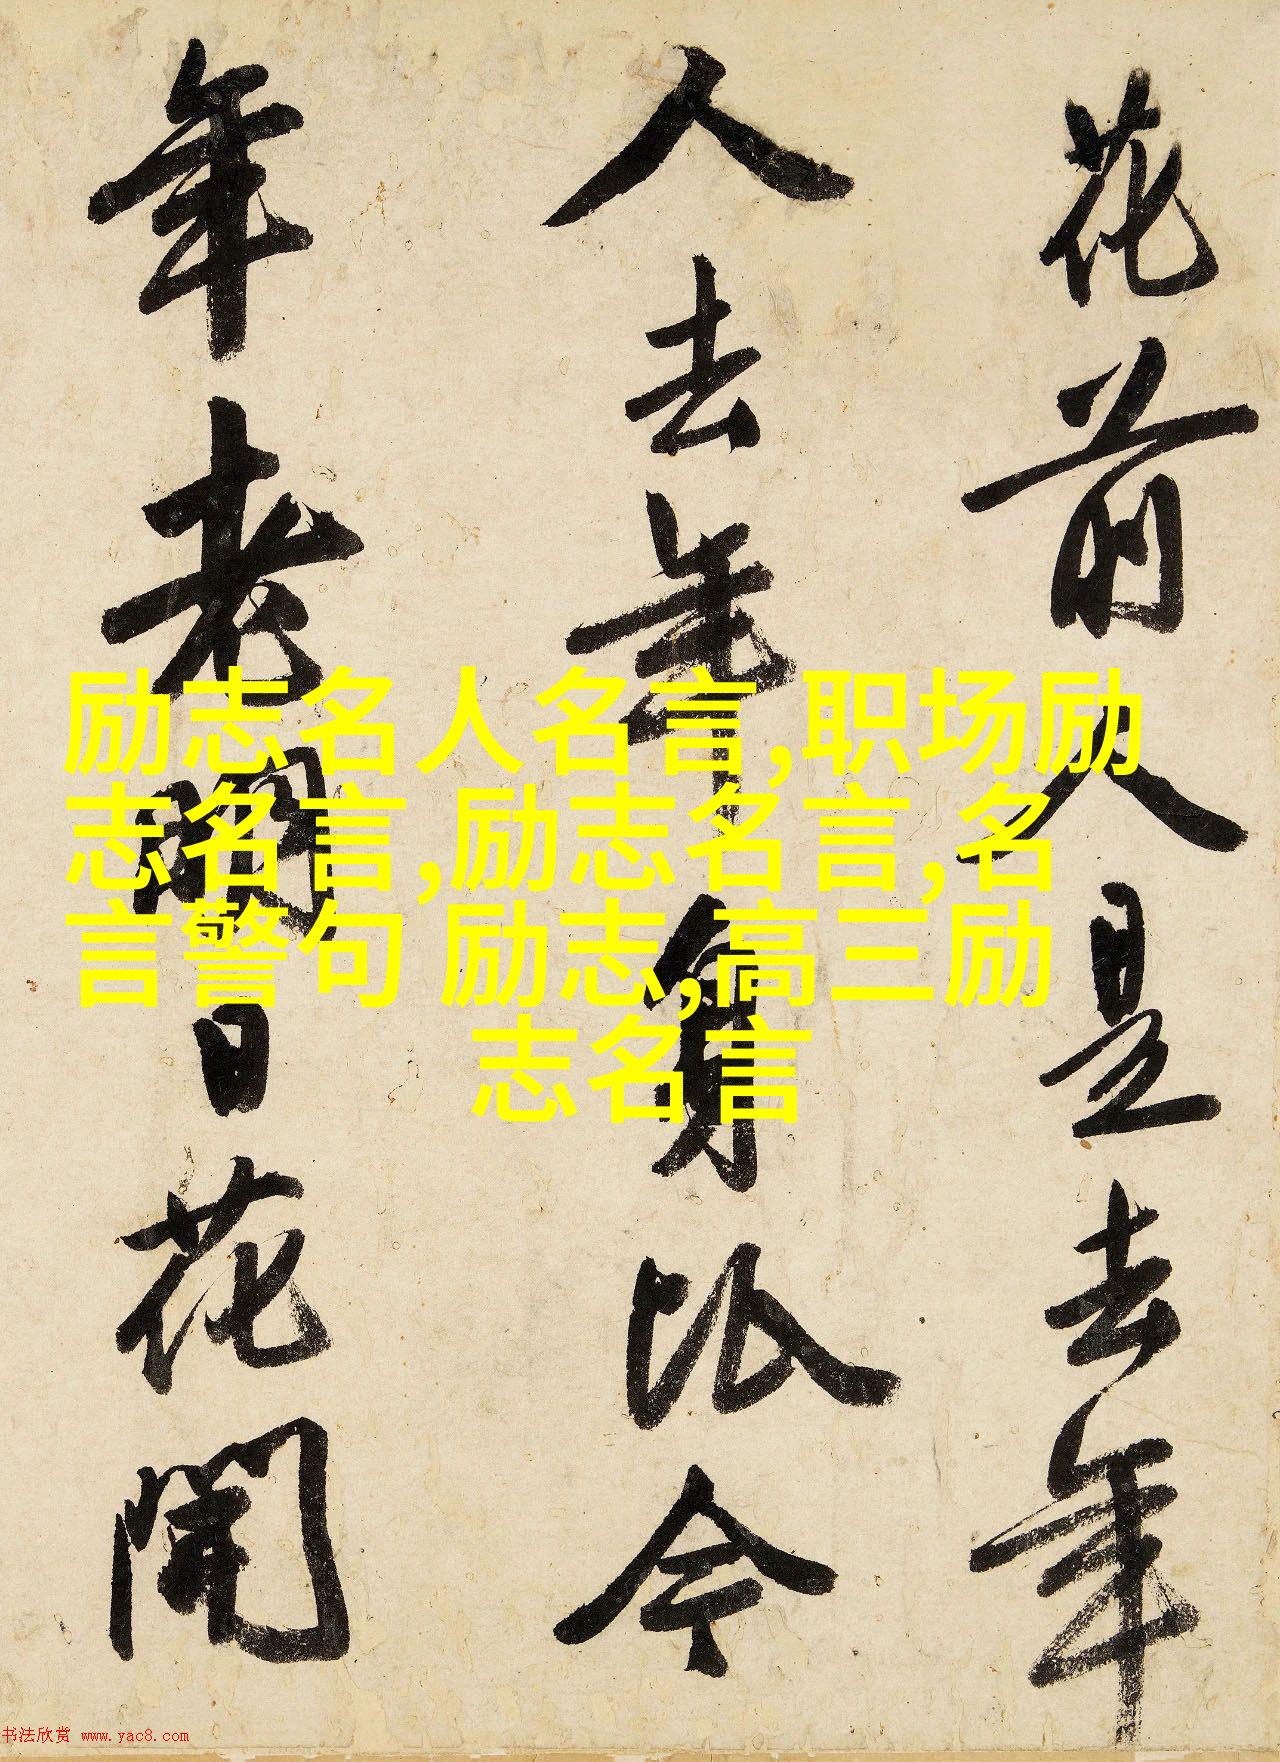 花前人是去年
人去年身比今
年老日花開
励志名人名言,职场励
志名言,励志名言,名
言警句 励志,高三励
志名言
书法欣赏 www.yac8.com